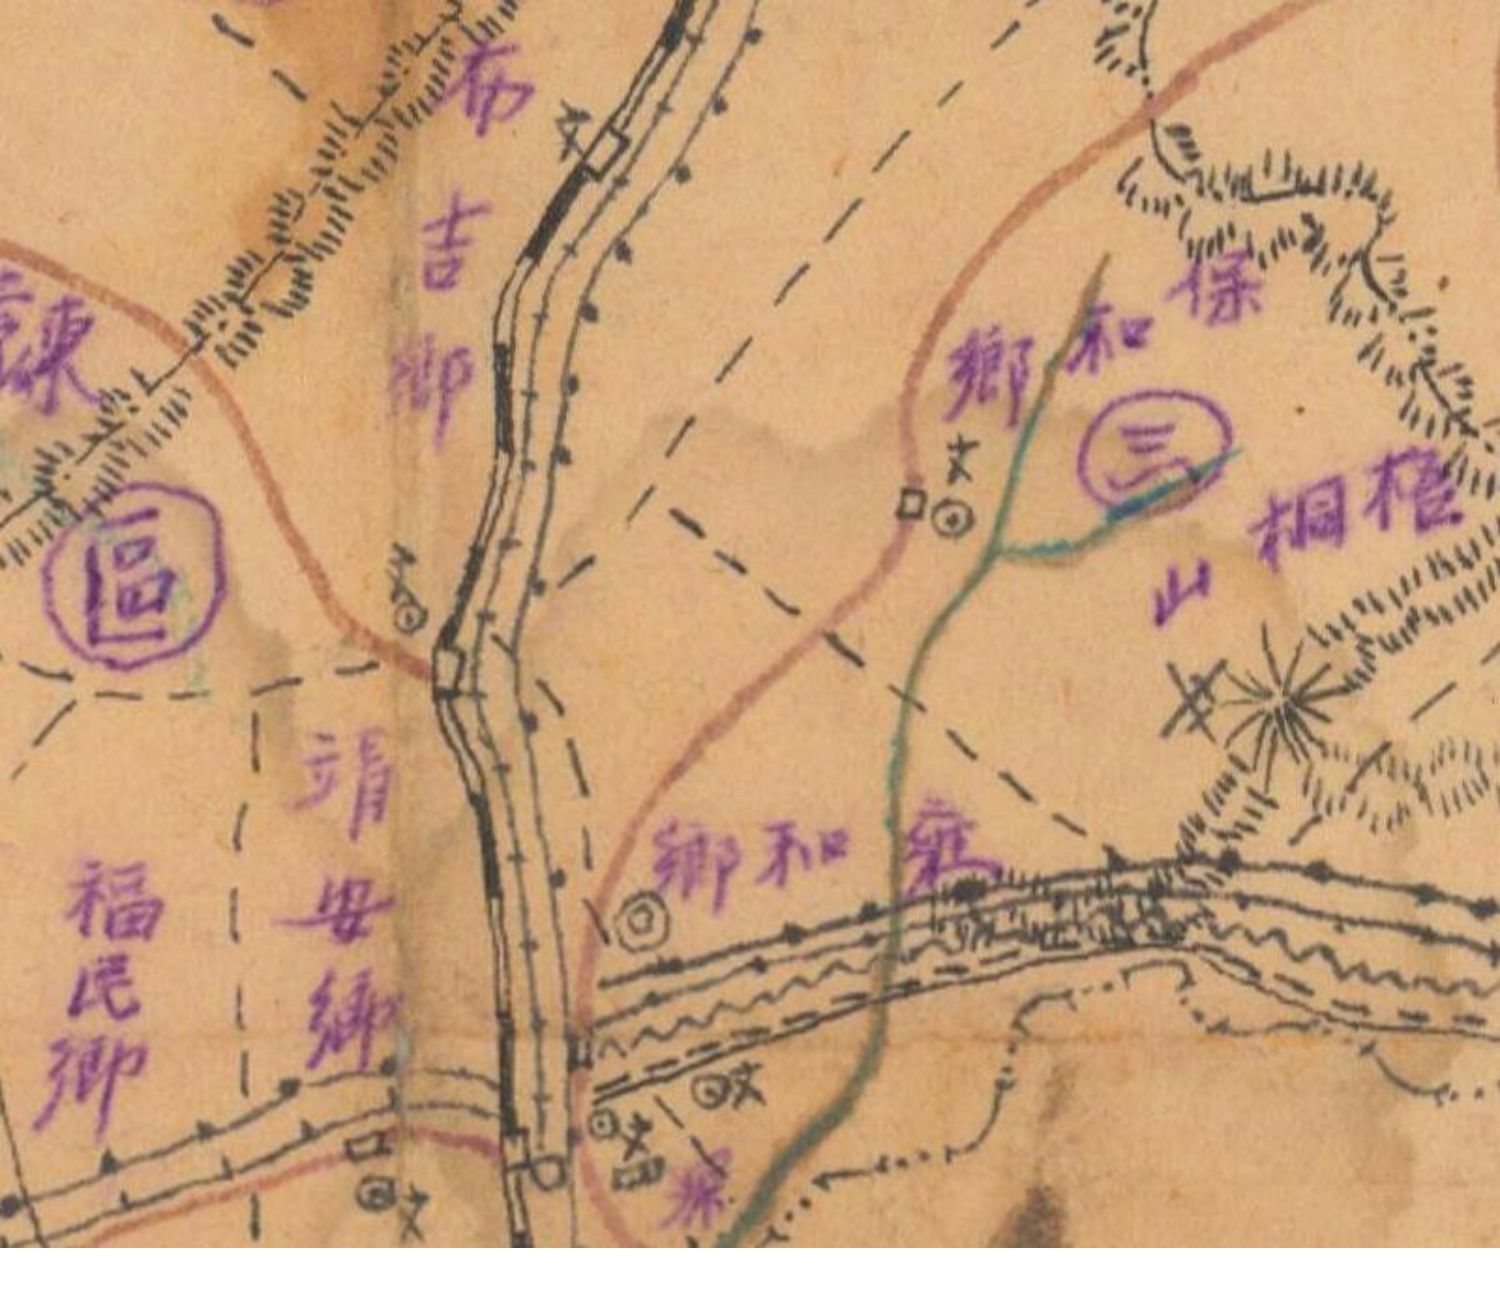 布吉鄉
文
保和鄉
三
文
梧桐山
區
文
靖安鄉
福民鄉
雍和鄉
文
文
深
文